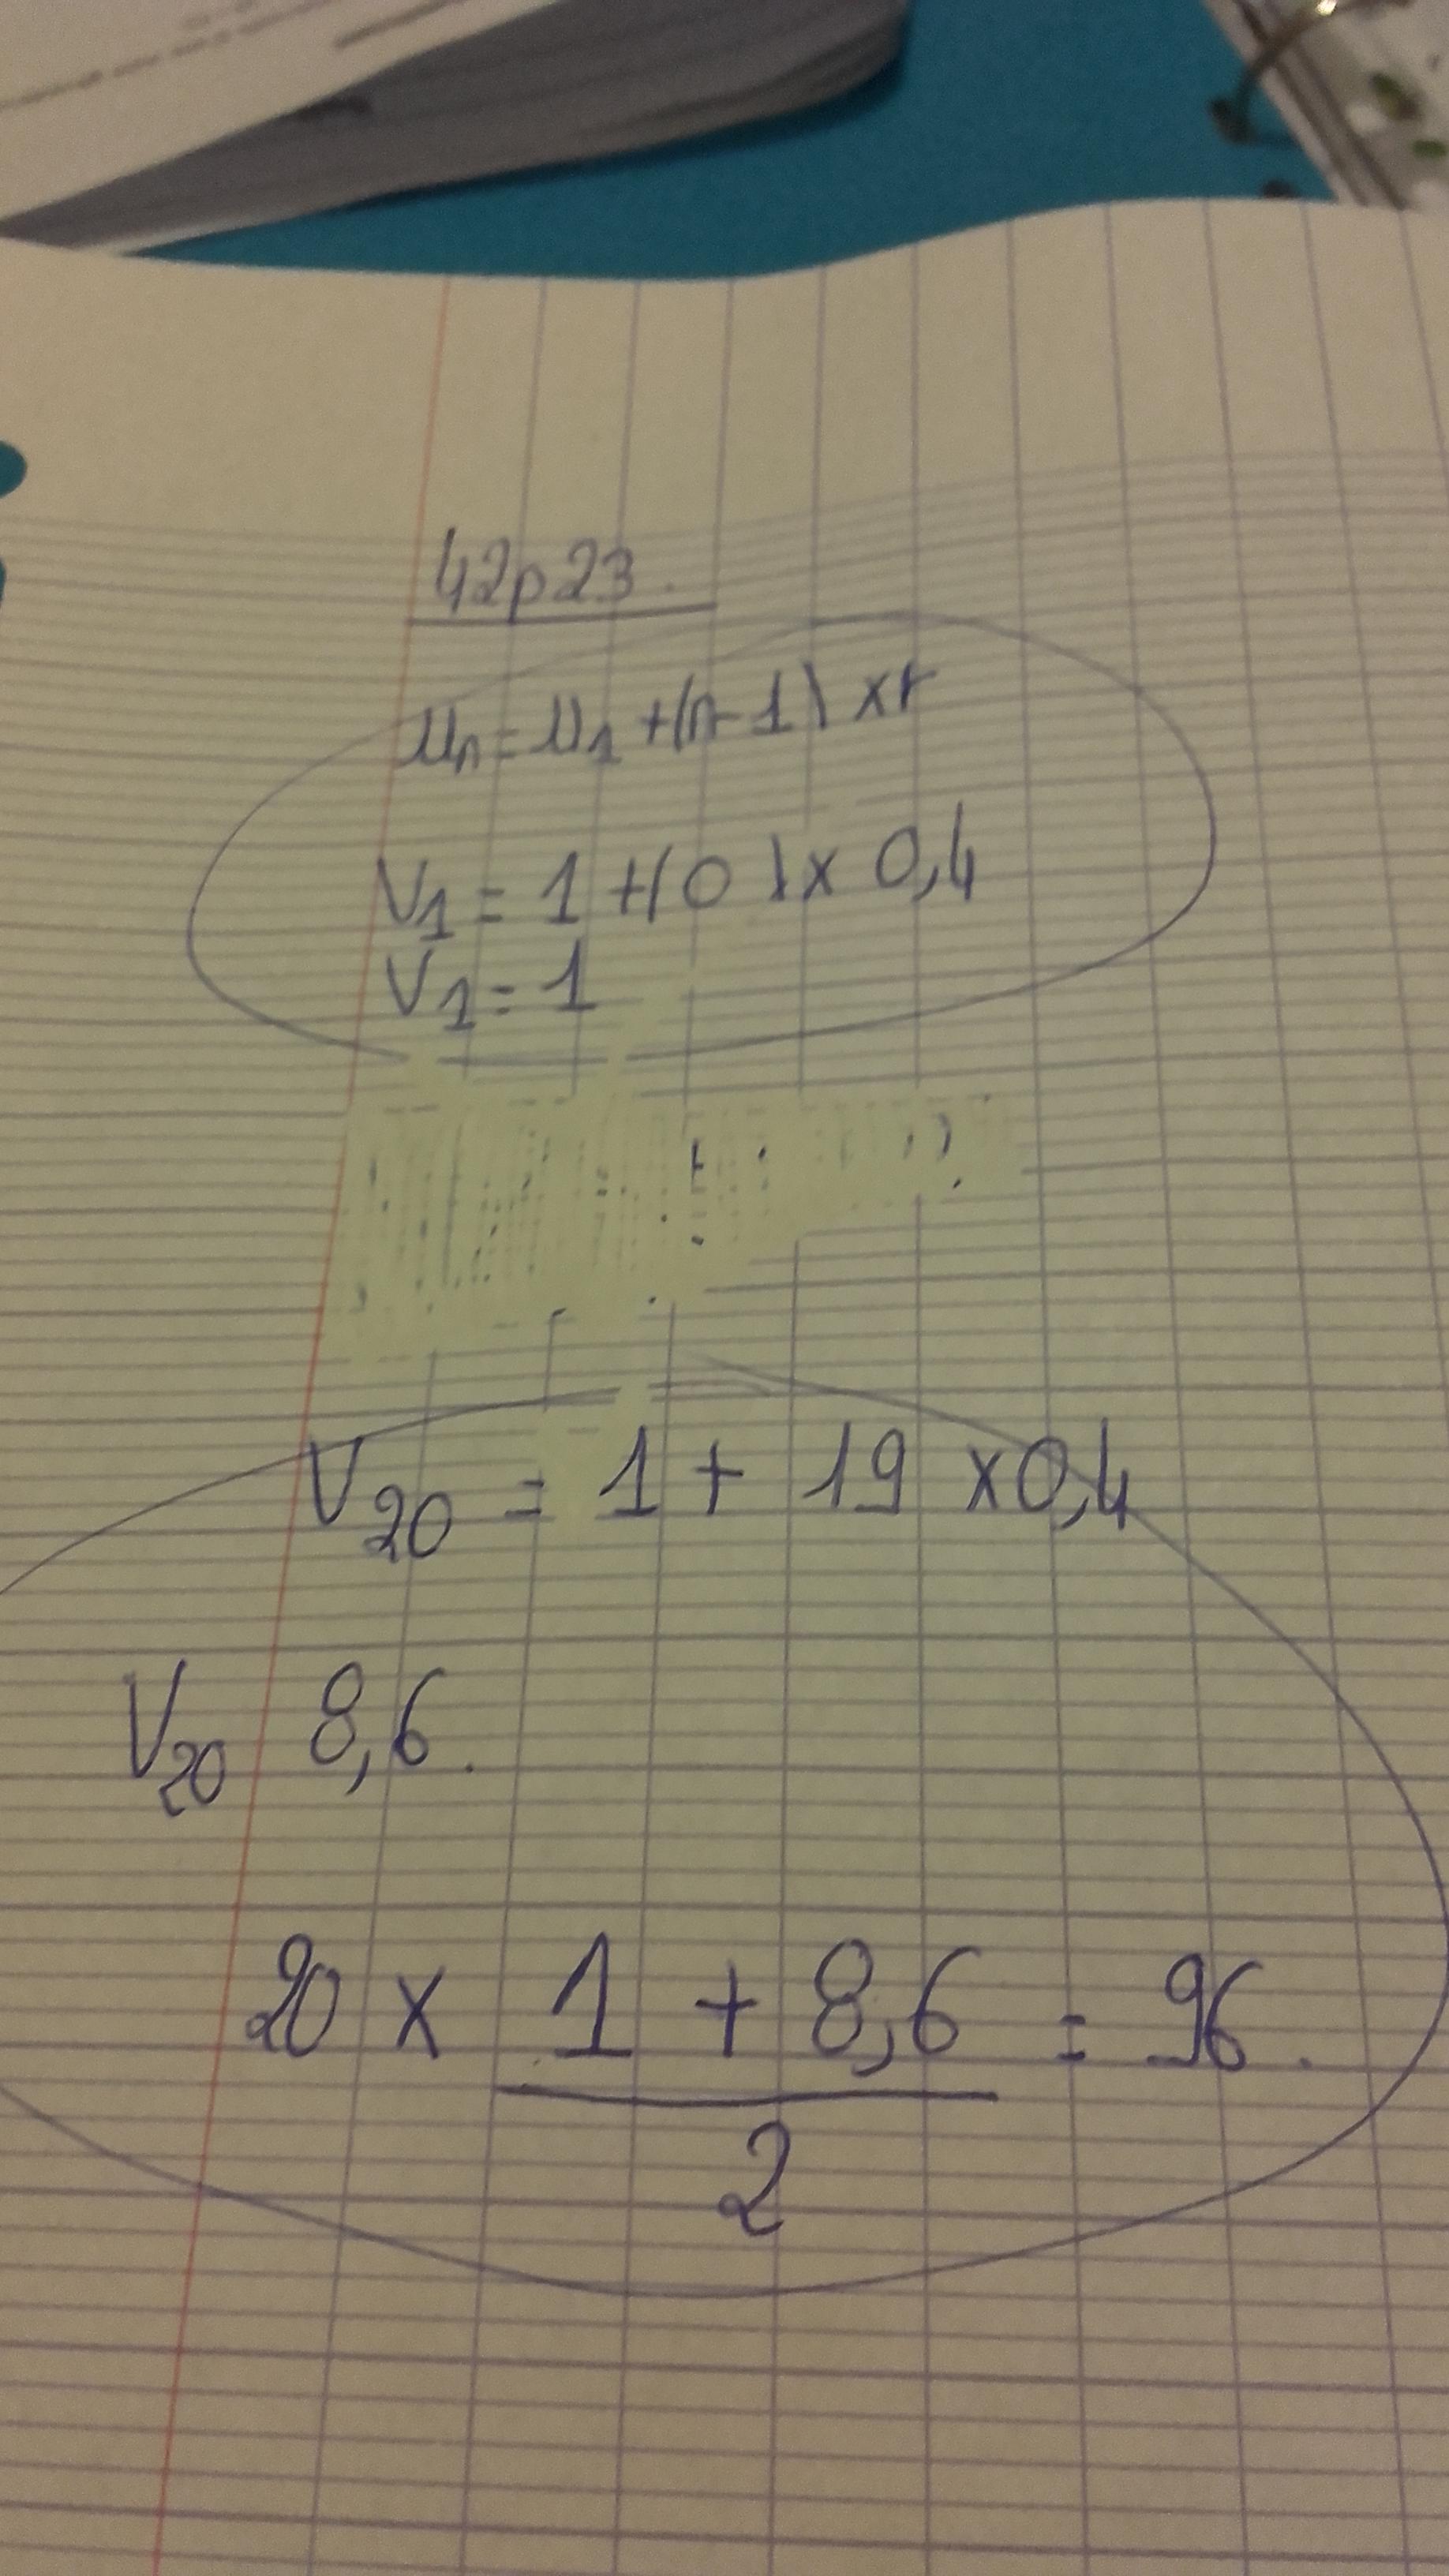 42p23.
Un = U1 + (n-1) x r
V1 = 1 + (0) x 0,4
V1 = 1
V20 = 1 + 19 x 0,4
V20 8,6.
20 x 1 + 8,6 = 96.
2